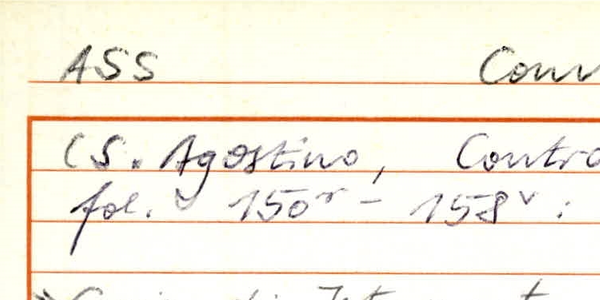 ASS Conv
(S. Agostino, Contra
fol. 150r - 158v :